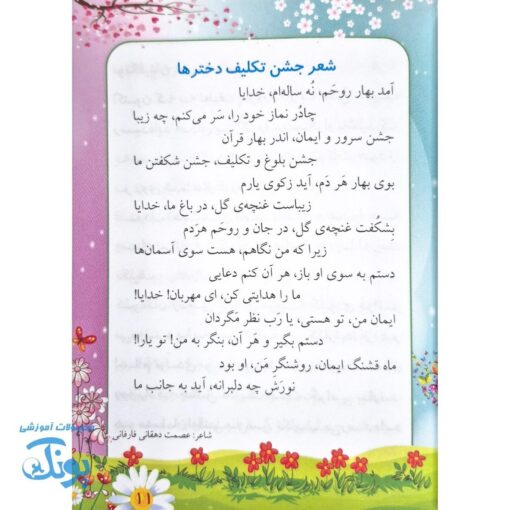 شعر جشن تکلیف دخترها
آمد بهار روحَم، نُه ساله‌ام، خدایا
چادُر نماز خود را، سَر می‌کنم، چه زیبا
جشن سرور و ایمان، اندر بهار قرآن
جشن بلوغ و تکلیف، جشن شکفتن ما
بوی بهار هَر دَم، آید زکوی یارم
زیباست غنچه‌ی گل، در باغ ما، خدایا
بِشکُفت غنچه‌ی گل، در جان و روحَم هردَم
زیرا که من نگاهم، هست سوی آسمان‌ها
دستم به سوی او باز، هر آن کنم دعایی
ما را هدایتی کن، ای مهربان! خدایا!
ایمان من، تو هستی، یا رَب نظر مَگردان
دستم بگیر و هَر آن، بنگر به من! تو یارا!
ماه قشنگ ایمان، روشنگرِ مَن، او بود
نورَش چه دلبرانه، آید به جانب ما
شاعر: عصمت دهقانی فارفانی
محصولات آموزشی
پونک
۱۱